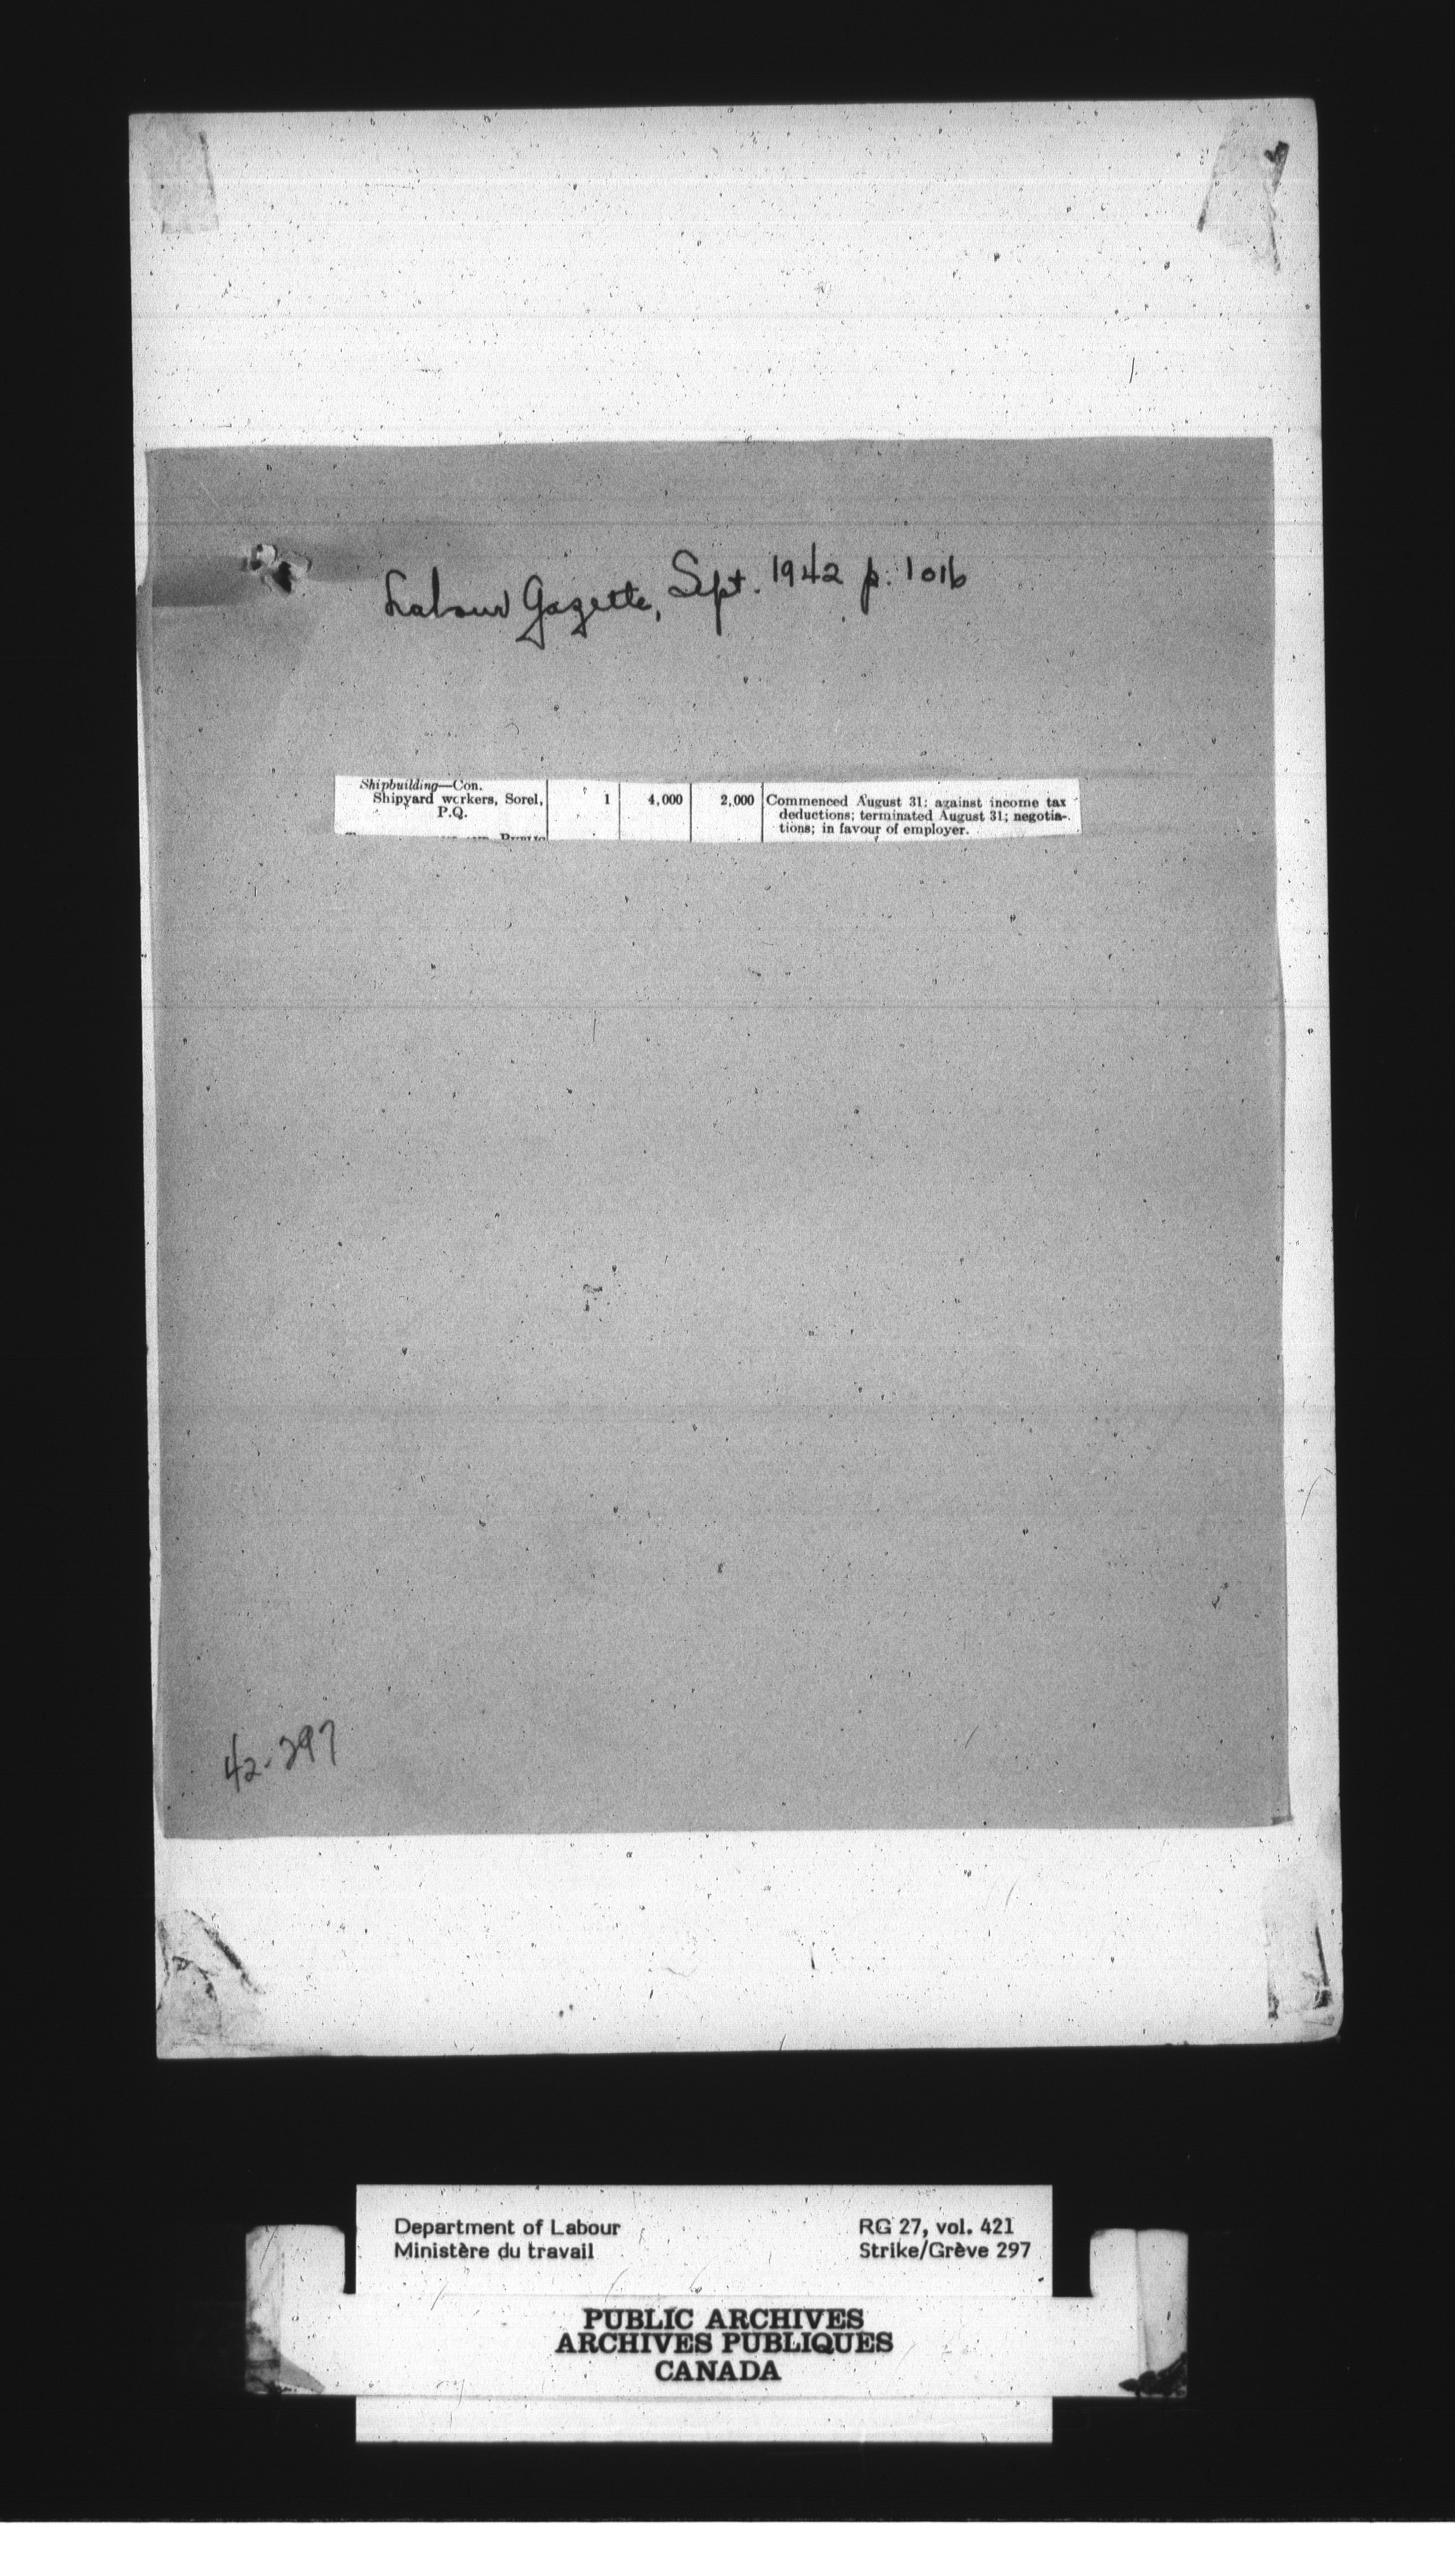 Labour Gazette, Sept. 1942 p. 1016
Shipbuilding—Con.
Shipyard workers, Sorel, P.Q. 1 4,000 2,000 Commenced August 31; against income tax
deductions; terminated August 31; negotia-
tions; in favour of employer.
42-297
Department of Labour RG 27, vol. 421
Ministère du travail Strike/Grève 297
PUBLIC ARCHIVES
ARCHIVES PUBLIQUES
CANADA